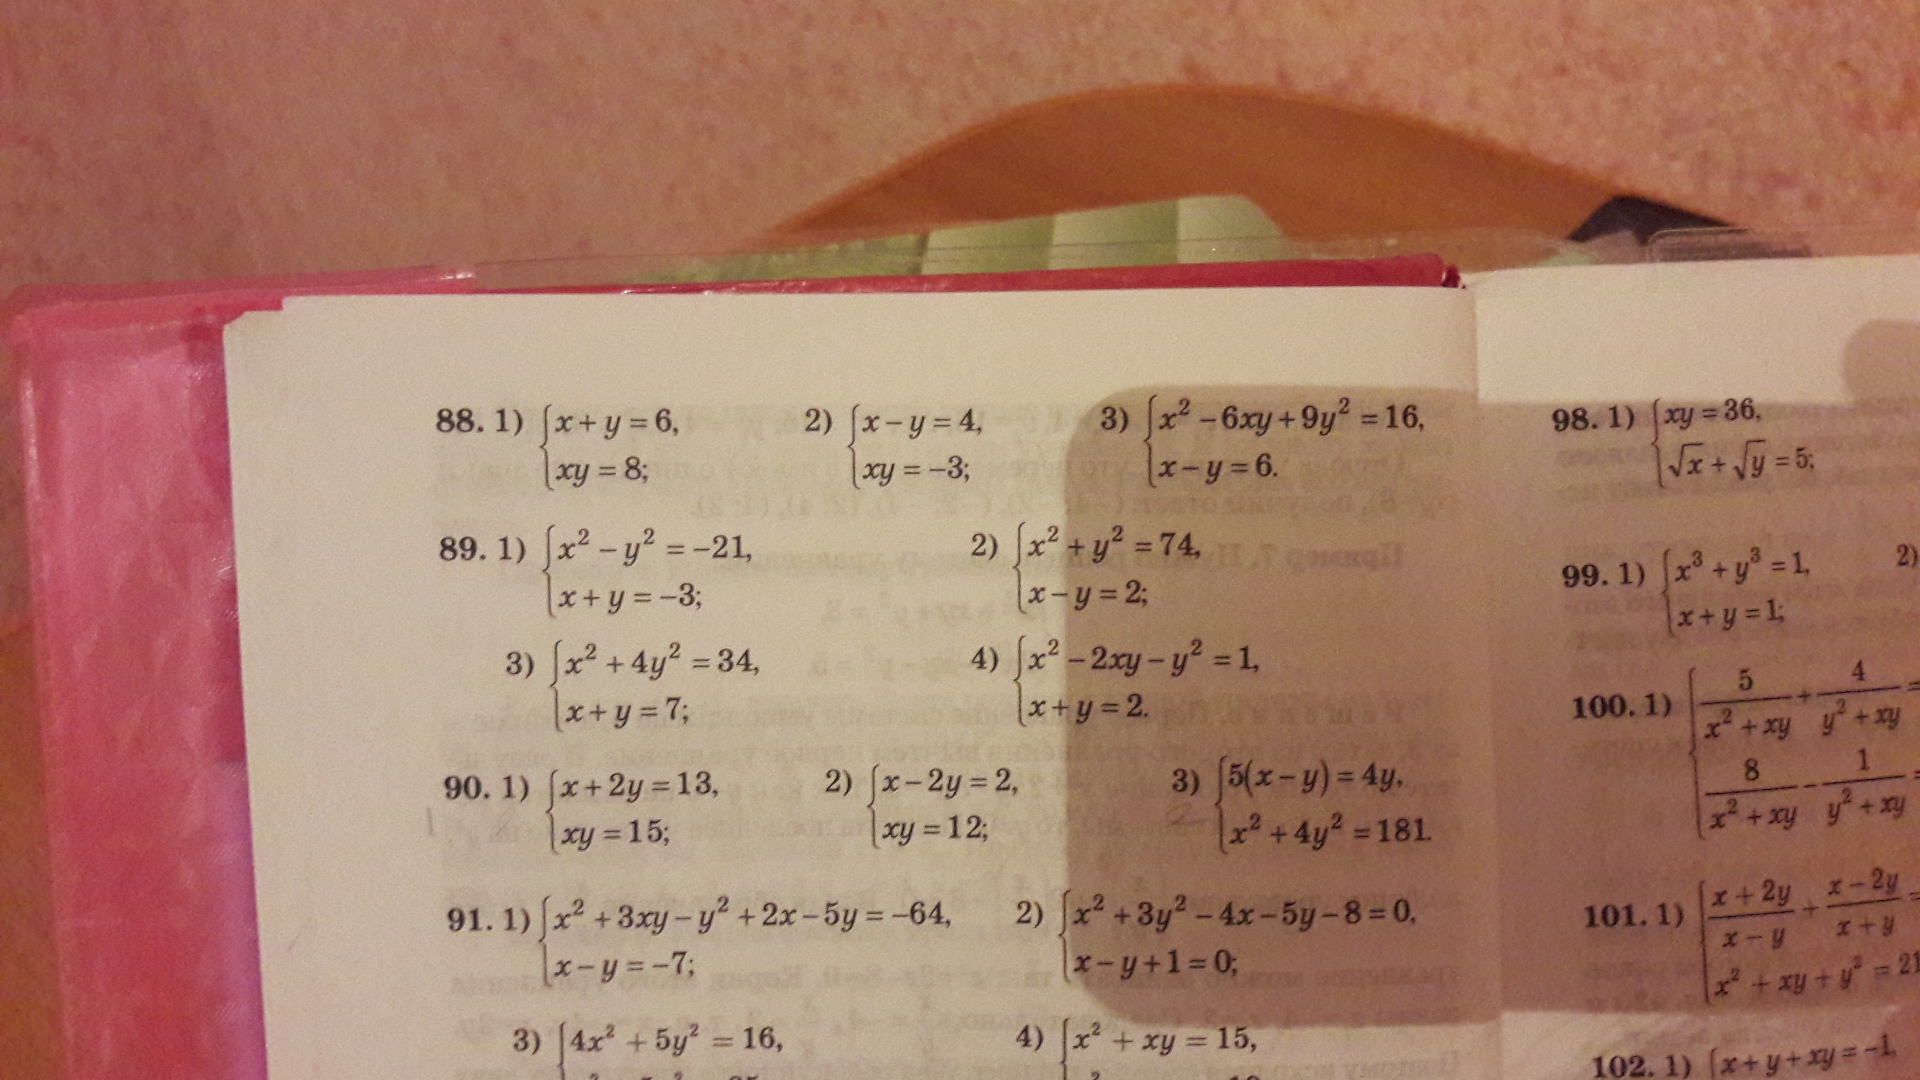 88. 1) { x + y = 6, xy = 8;
2) { x − y = 4, xy = −3;
3) { x² − 6xy + 9y² = 16, x − y = 6.
89. 1) { x² − y² = −21, x + y = −3;
2) { x² + y² = 74, x − y = 2;
3) { x² + 4y² = 34, x + y = 7;
4) { x² − 2xy − y² = 1, x + y = 2.
90. 1) { x + 2y = 13, xy = 15;
2) { x − 2y = 2, xy = 12;
3) { 5(x − y) = 4y, x² + 4y² = 181.
91. 1) { x² + 3xy − y² + 2x − 5y = −64, x − y = −7;
2) { x² + 3y² − 4x − 5y − 8 = 0, x − y + 1 = 0;
3) { 4x² + 5y² = 16,
4) { x² + xy = 15,
98. 1) { xy = 36, √x + √y = 5;
99. 1) { x³ + y³ = 1, x + y = 1;
2)
100. 1) { 5/(x² + xy) + 4/(y² + xy) = 8/(x² + xy) − 1/(y² + xy) =
101. 1) { (x + 2y)/(x − y) + (x − 2y)/(x + y) = x² + xy + y² = 21
102. 1) { x + y + xy = −1,